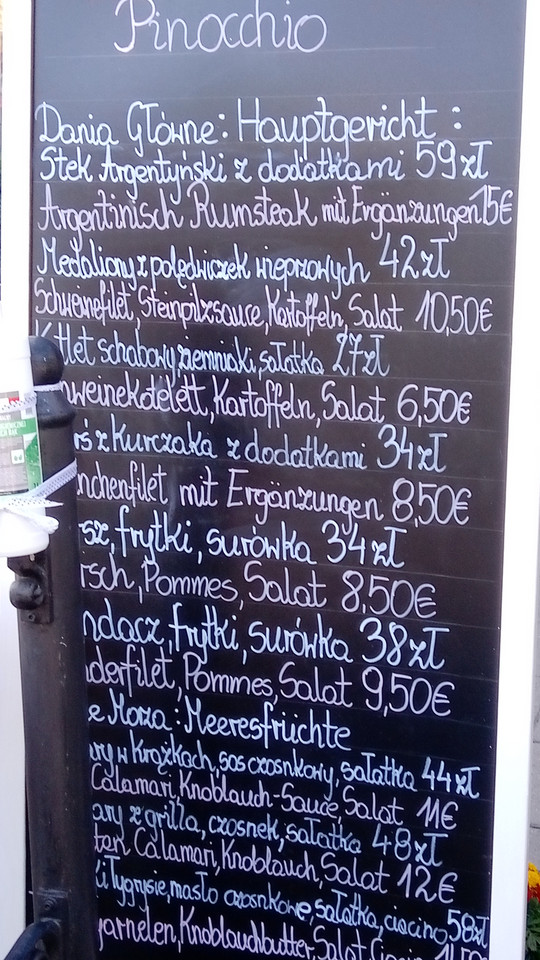 Pinocchio
Dania Główne: Hauptgericht:
Stek Argentyński z dodatkami 59zł
Argentinisch Rumsteak mit Ergänzungen 15€
Medaliony z polędwiczek wieprzowych 42zł
Schweinefilet, Steinpilzsauce, Kartoffeln, Salat 10,50€
schabowy, ziemniaki, sałatka 27zł
Kartoffeln, Salat 6,50€
z Kurczaka z dodatkami 34zł
mit Ergänzungen 8,50€
frytki, surówka 34zł
Pommes, Salat 8,50€
frytki, surówka 38zł
Pommes, Salat 9,50€
Morza: Meeresfrüchte
w Krążkach, sos czosnkowy, sałatka 44zł
Calamari, Knoblauch-Sauce, Salat 11€
z grilla, czosnek, sałatka 48zł
Calamari, Knoblauch, Salat 12€
Tygrysie, masło czosnkowe, sałatka, ciacino 58zł
Knoblauchbutter, Salat,